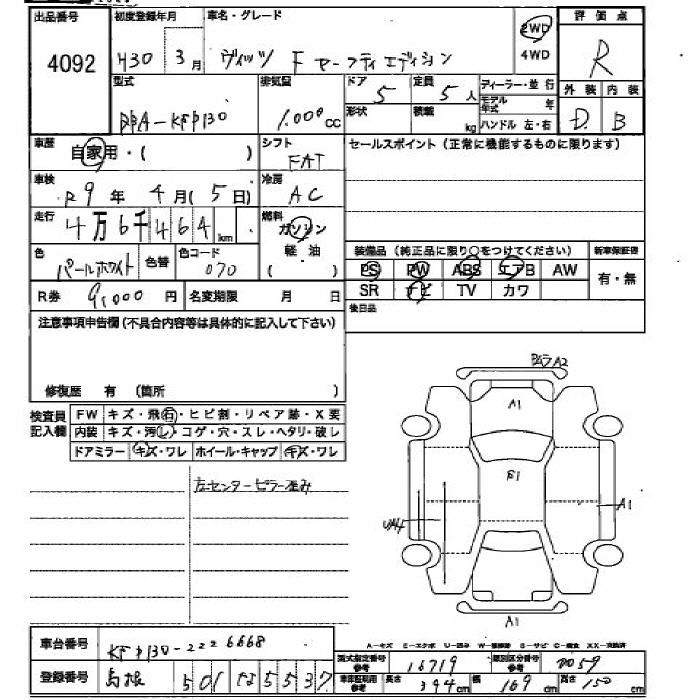 出品番号 初度登録年月 車名・グレード 評価点
4092 H30 3月 ヴィッツ F セーフティエディション 2WD 4WD R
型式 排気量 ドア 定員 ディーラー・並行 外装 内装
DBA-KSP130 1.000cc 5 5人 モデル年式 年 D B
形状 積載 kg ハンドル 左・右
車歴 自家用・( ) シフト FAT セールスポイント(正常に機能するものに限ります)
車検 R9年 4月(5日) 冷房 AC
走行 4万6千464km 燃料 ガソリン 軽・油 ( )
色 パールホワイト 色替 色コード 070
装備品(純正品に限り○をつけてください) 新車保証書
PS PW ABS エアB AW 有・無
SR ナビ TV カワ
R券 9,000円 名変期限 月 日 後日品
注意事項申告欄(不具合内容等は具体的に記入して下さい)
修復歴 有 (箇所 )
検査員記入欄 FW キズ・飛石・ヒビ割・リペア跡・X要
内装 キズ・汚し・コゲ・穴・スレ・ヘタリ・破レ
ドアミラー キズ・ワレ ホイール・キャップ キズ・ワレ
左センターピラー歪み
A2
A1
E1
A1
UA4
A1
A-キズ E-エクボ U-凹み W-補修跡 S-サビ C-腐食 XX-交換済
車台番号 KSP130-2226668
型式指定番号 参考 16719 類別区分番号 参考 0059
登録番号 島根 501 な 5537
車庫証明用 参考 長さ 394cm 幅 169cm 高さ 150cm